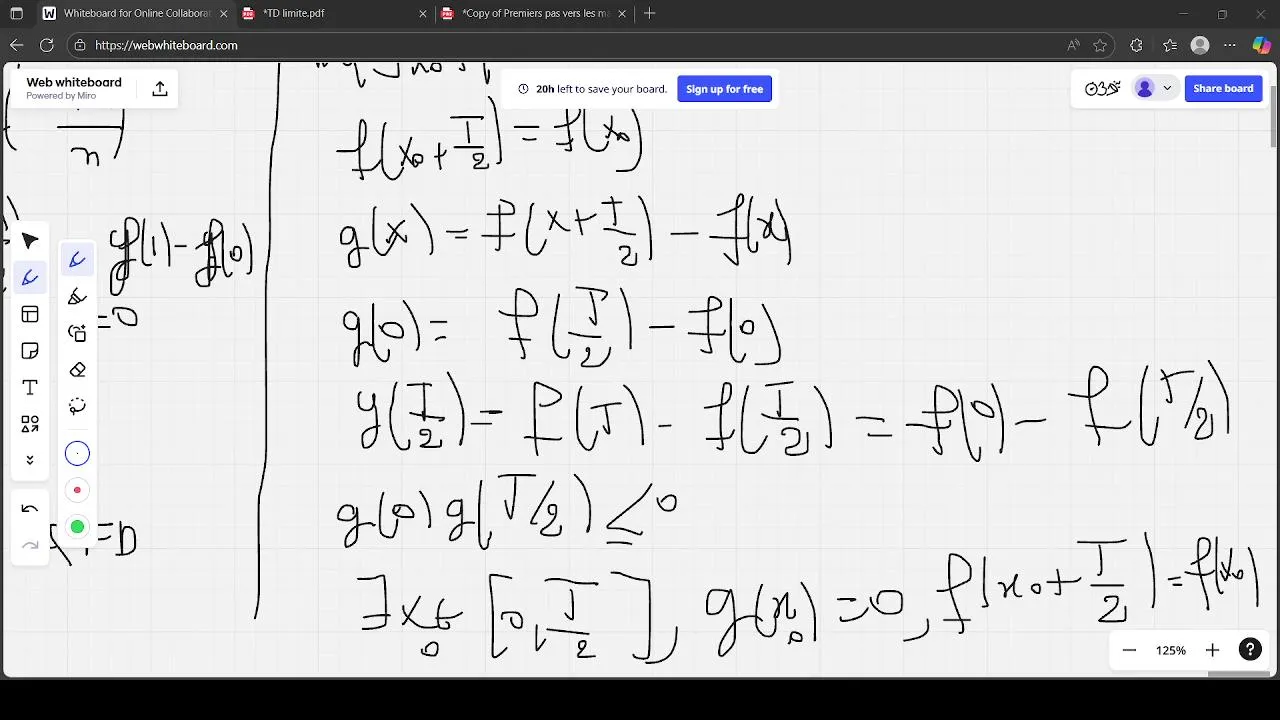 Whiteboard for Online Collaborat
*TD limite.pdf
*Copy of Premiers pas vers les ma
https://webwhiteboard.com
Web whiteboard
Powered by Miro
20h left to save your board.
Sign up for free
Share board
n
f(1) - f(0)
= 0
f(x₀ + T/2) = f(x₀)
g(x) = f(x + T/2) - f(x)
g(0) = f(T/2) - f(0)
g(T/2) = f(T) - f(T/2) = f(0) - f(T/2)
g(0) g(T/2) ≤ 0
∃ x₀ ∈ [0, T/2], g(x₀) = 0, f(x₀ + T/2) = f(x₀)
125%